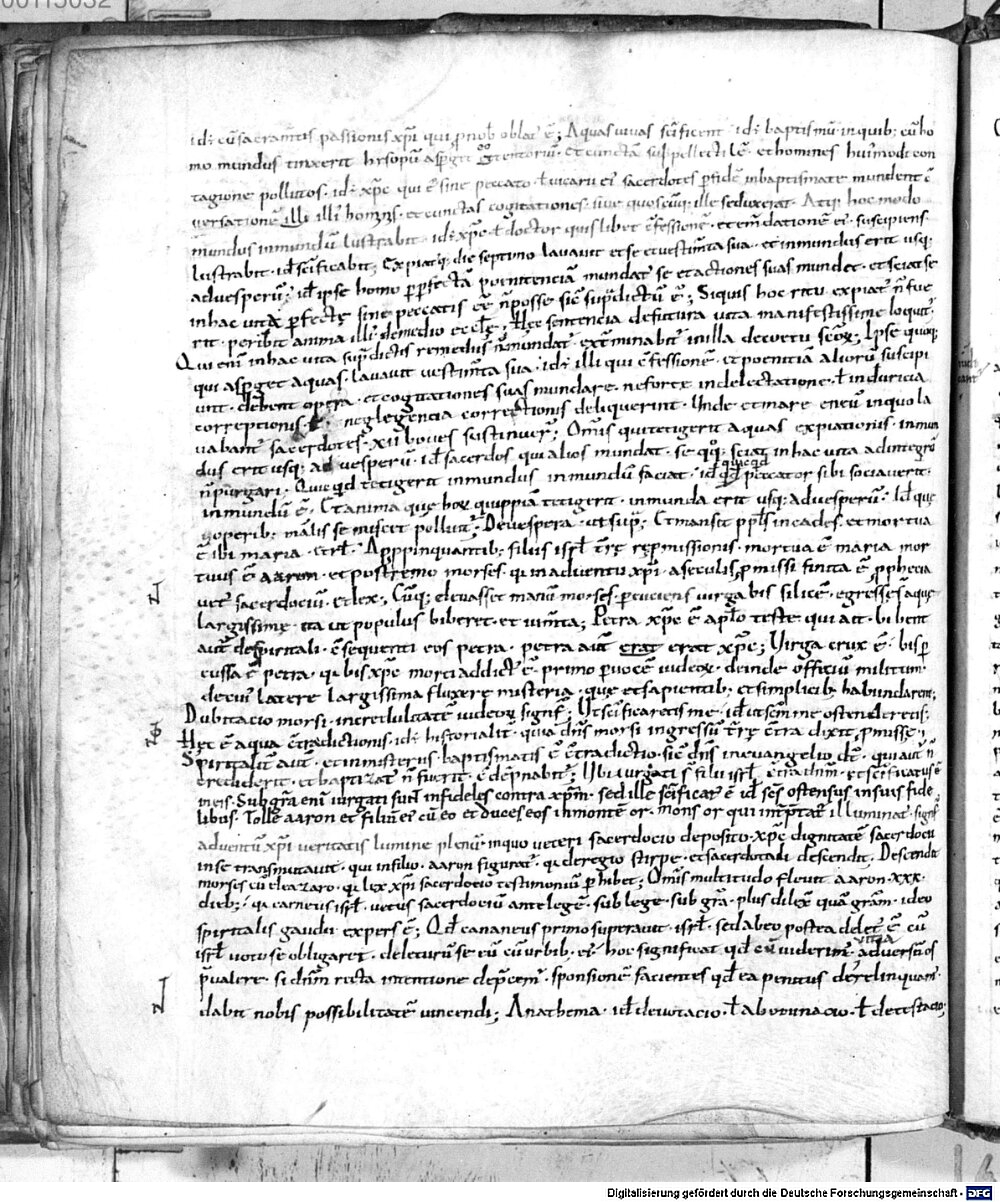 00113032
id÷ cū sacram̄tis passionis xp̄i qui ꝓ nob̄ oblat' ē; Aquas vivas sc̄ificent id÷ baptismū in quib; cū ho
mo mundus tinxerit hysopū asꝑget tentoriū · et cunctā suppellectilē · et homines huiusmodi con
tagione pollutos · id÷ xp̄c qui ē sine peccato · ł vicarii ei' sacerdotes ꝑ fidē in baptismate mundent 
versationē illi' hominis · et cunctas cogitationes · sive quoscūq; ille seduxerat · Atq; hoc modo
mundus inmundū lustrabit · id÷ xp̄c · ł doctor quislibet ↄfessionē · et em̄dationē ei' suscipiens
lustrabit · id÷ sc̄ificabit; Expiatusq; die septimo lavavit et se et vestim̄ta sua · et inmundus erit usq;
ad vesperū; id÷ ipse homo ꝑ ꝑfectā poenitenciā mundat se et actiones suas mundet · et sciat se
in hac vita ꝑfecte sine peccatis ēē n̄ posse sic' sup̄dictū ē; Siquis hoc ritu expiat' n̄ fue
rit · peribit anima illi' de medio eccłe; Hęc sentencia de futura vita manifestissime loquit';
Qui eni' in hac vita sup̄dictis remediis n̄ mundat' ext̄minabit' in illa de coetu sc̄oꝝ; Ipse quoq;
qui asꝑget aquas · lavavit vestim̄ta sua · id÷ illi qui ↄfessionē · et poenitētia aliorū suscipi
unt · debent opera · et cogitationes suas mundare · ne forte in delectatione · ł in duricia
correptionis · neglegencia correctionis deliquerint · Unde et mare eneū in quo la
vabant' sacerdotes · xii boves sustinuer̄; Om̄is qui tetigerit aquas expiationis · inmun
dus erit usq; ad vesperū · id÷ sacerdos qui alios mundat · se qq; sciat in hac vita ad integrū
n̄ purgari · Quicqd tetigerit inmundus inmundū faciat · id÷ quicqd peccator sibi sociaverit ·
inmundū ē · Et anima que hoꝝ quippiā tetigerit · inmunda erit usq; ad vesperū · Id÷ que
operib; malis se miscet polluit'; De vespera · ut sup̄; Et mansit ppłs in cades · et mortua
ē ibi maria · et rł · Appropinquantib; filiis isrł t̄rę repromissionis · mortua ē maria mor
tuus ē aaron · et postremo moyses · qa in adventu xp̄i a seculis ꝓmissi finita ē ꝓphecia
vet' sacerdociū · et lex; Cūq; elevasset manū moyses · ꝑcuciens virga bis silicē · egressę s̄ aquę
largissimę ita ut populus biberet · et ium̄ta; Petra xp̄c ē apł'o teste qui ait · bibent
aut' de spiritali · ↄsequenti eos petra · petra aut' erat erat xp̄c; Virga crux ē · bis ꝑ
cussa ē petra · qa bis xp̄c morti addict' ē · primo ꝑ vocē iudeoꝝ · deinde officiū militum ·
de cui' latere largissima fluxere misteria · quę et sapientib; et simplicib; habundarent;
Dubitacio moysi · incredulitatē iudeoꝝ signif'; Ut sc̄ificaretis me · id÷ ut sc̄m me ostenderetis;
Hęc ē aqua ↄtradictionis · id÷ historialit' · quia dn̄s moysi ingressū t̄rę ↄtra dixit ꝓmisse;
Spiritalit' aut' · et in misteriis · baptismatis ē ↄtradictio · sic' dn̄s in evangelio dt̄ · qui aut' n̄
crediderit · et baptizat' n̄ fuerit · ↄdēpnabit'; Ubi iurgati s̄ filii isrł · ↄtra dn̄m · et sc̄ificatus ē
in eis · Sub gr̄a eni' iurgati sunt infideles contra xp̄m · sed ille sc̄ificat' ē id÷ sc̄s ostensus in suis fide
libus · Tolle aaron et filiū ei' cū eo et duces eos in montē or · Mons or qui int̄p̄tat' illuminat' · signif'
adventū xp̄i veritatis lumine plenū · in quo veteri sacerdocio deposito · xp̄c dignitatē sacerdocii
in se transmutavit · qui in filio · aaron figurat' · qa de regio stirpe · et sacerdotali descendit · Descendit
moyses cū eleazaro · qa lex xp̄i sacerdocio testimoniū ꝑhibet; Om̄is multitudo flevit aaron · xxx ·
dieb; · qa carneus isrł · vetus sacerdociū ante legē · sub lege · sub gr̄a · plus dilex' quā gr̄am · ideo
spiritalis gaudii expers ē; Qd̄ cananeus primo superavit · isrł · sed ab eo postea delet' ē · cū
isrł voto se obligaret · deleturū se eū cū urbib; · ei' · hoc significat qd̄ cū viderim' vitia adversū nos
p̄valere · si dn̄m recta intentione dep̄cem' · sponsionē facientes qd̄ ea penitus derelinquam'
dabit nobis possibilitatē vincendi; Anathema · id÷ devotacio · ł abominacio · ł detestacio;
Digitalisierung gefördert durch die Deutsche Forschungsgemeinschaft - DFG